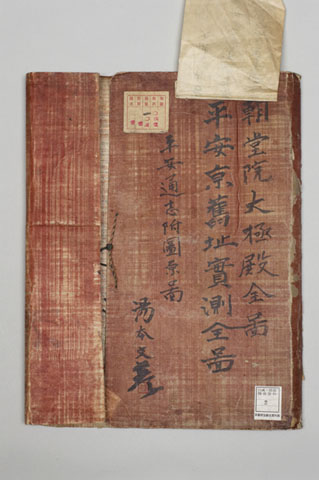 朝堂院大極殿全啚
平安京舊址實測全啚
平安通志附圖原啚
湯本文彦